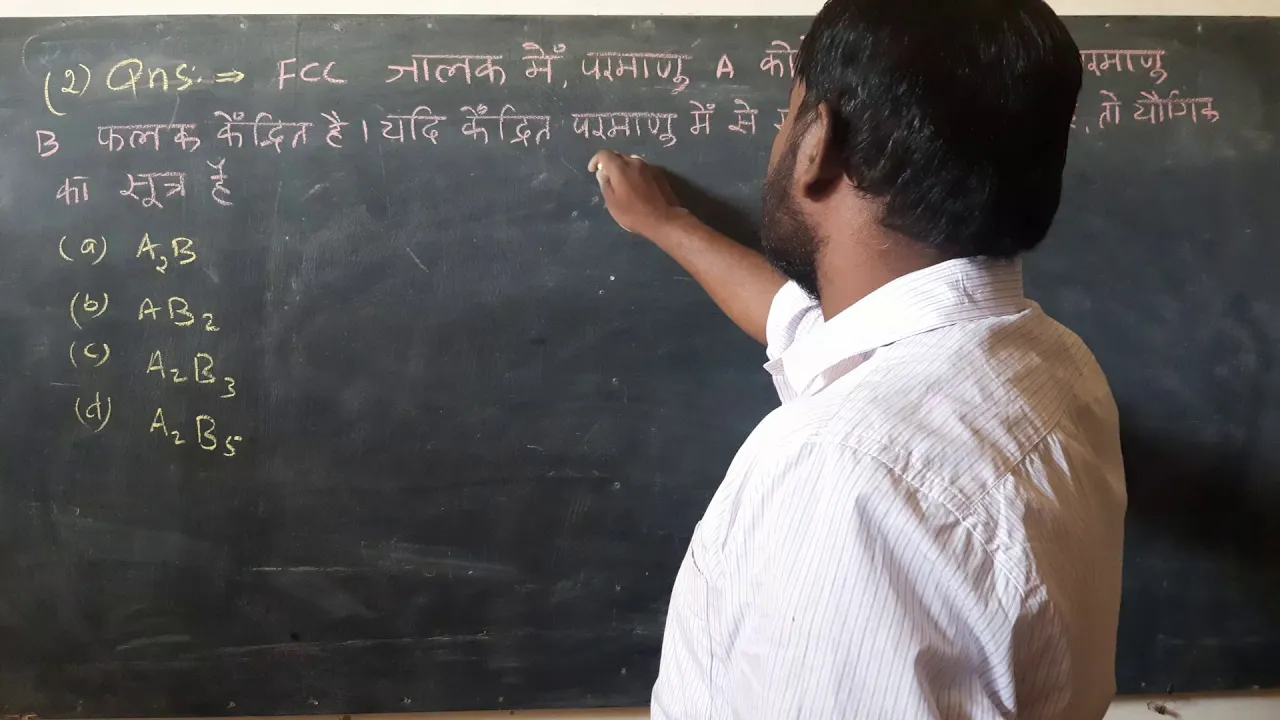 (2) Qns.⇒ FCC जालक में, परमाणु A परमाणु
B फलक केंद्रित है। यदि केंद्रित परमाणु में से तो यौगिक
का सूत्र है
(a) A₂B
(b) AB₂
(c) A₂B₃
(d) A₂B₅